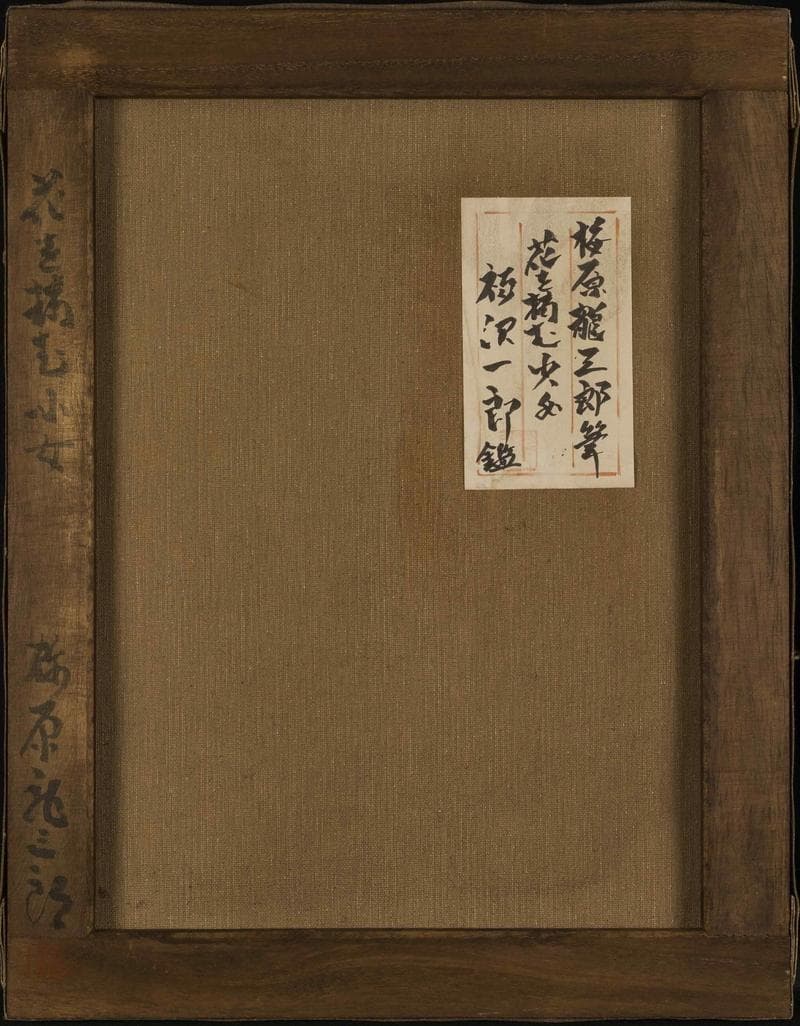 梅原龍三郎筆
花を摘む少女
福沢一郎鑑
花を摘む小女
梅原龍三郎